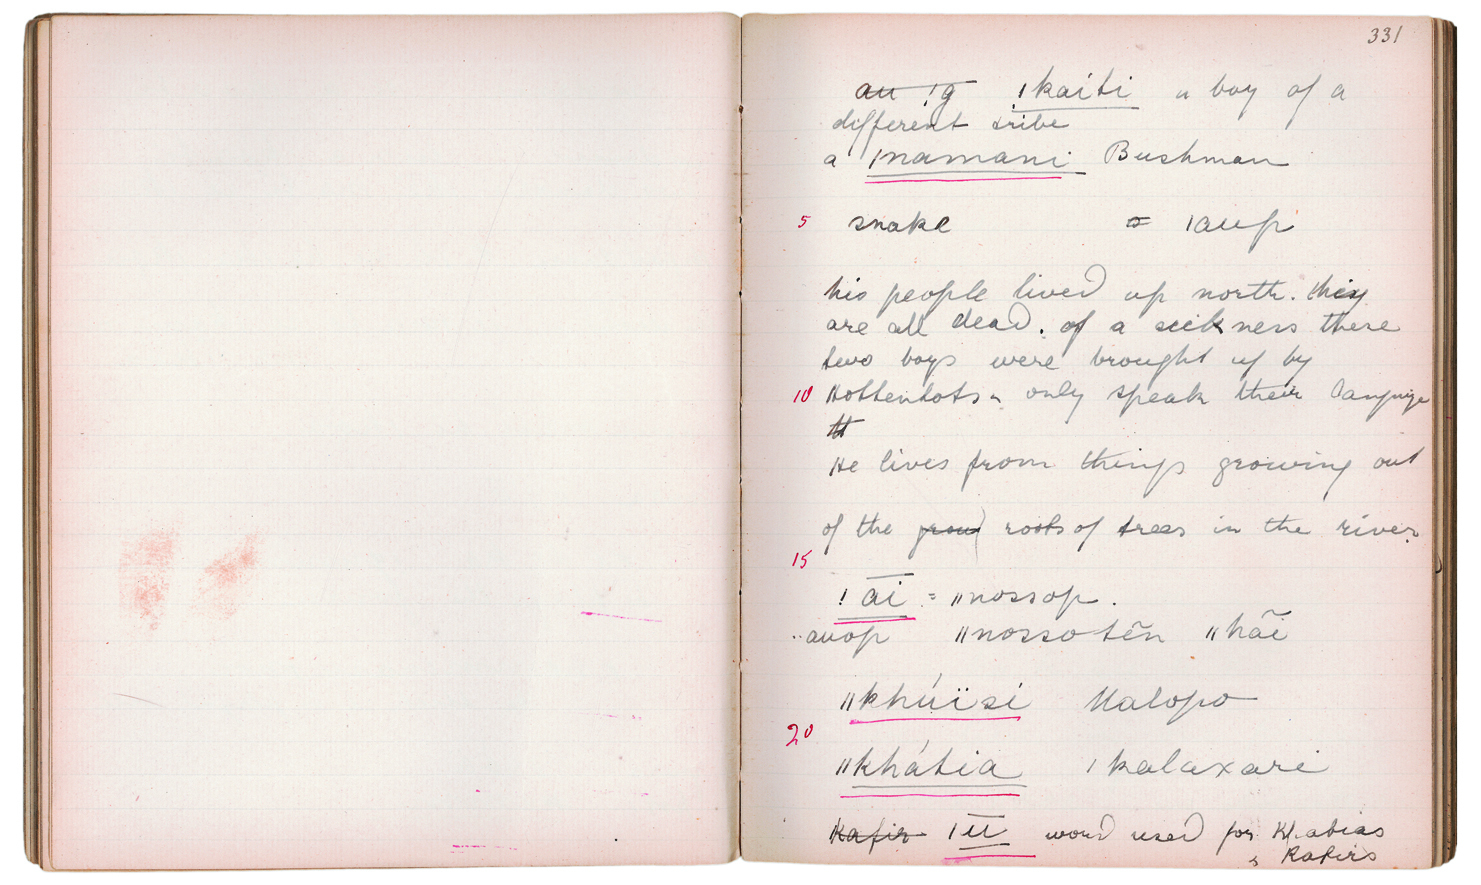 331
a̶u̶ ̶!̶g̶ !kaíti a boy of a
different tribe
a |namani Bushman
5 snake = |aup
his people lived up north. they
are all dead. of a sickness these
two boys were brought up by
10 Hottentots only speak their language
He lives from things growing out
of the g̶r̶o̶u̶n̶d̶ roots of trees in the river
15
!āi = ǁnossop.
..auop ǁnossotẽn ǁhãi
ǁkhúïsi Malopo
20
ǁkhátia |kalaxari
K̶a̶f̶i̶r̶ |ū word used for Khatias
& Kafirs